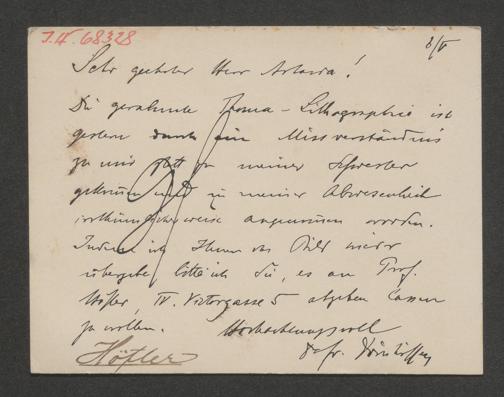 J.N. 68328
8/V
Sehr geehrter Herr Artaria!
Die gerahmte Thoma-Lithographie ist
gestern durch ein Missverständnis
zu mir statt zu meiner Schwester
gekommen und in meiner Abwesenheit
irrthümlicherweise angenommen worden.
Indem ich Ihnen das Bild wieder
übergebe, bitte ich Sie, es an Prof.
Höfler, IV. Victorgasse 5 abgeben lassen
zu wollen. Hochachtungsvoll
Höfler